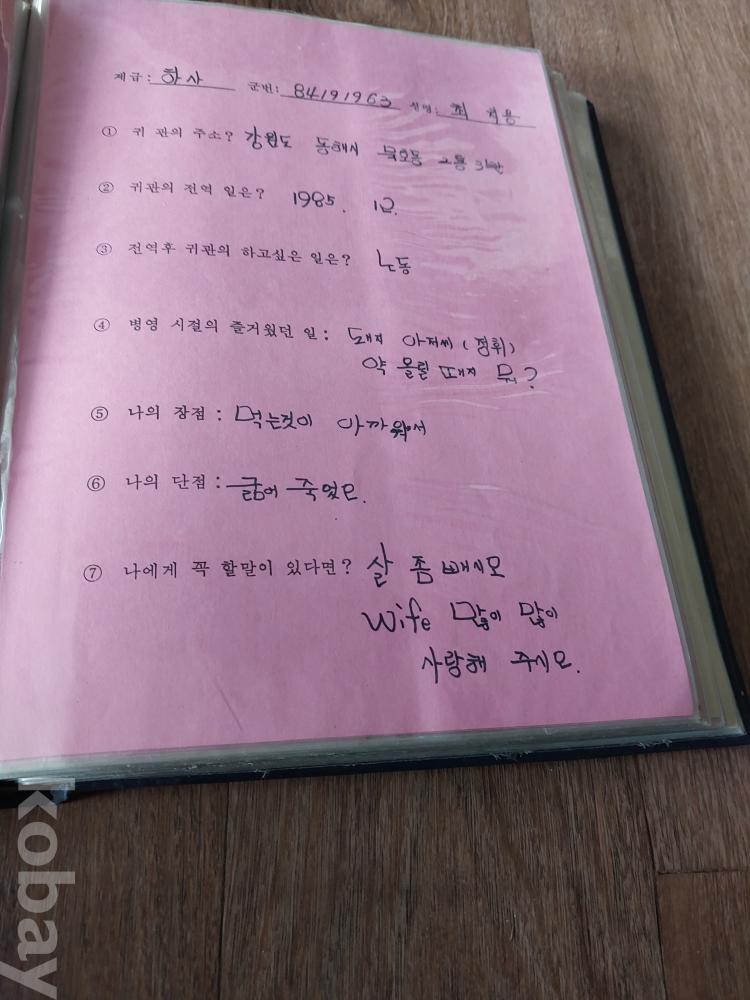 계급: 하사 군번: 84191963 성명: 최
① 귀 관의 주소? 강원도 동해시 묵호동 2통 3반
② 귀관의 전역 일은? 1985. 12.
③ 전역후 귀관의 하고싶은 일은? 노동
④ 병영 시절의 즐거웠던 일: 돼지 아저씨 (정휘)
약 올릴 때지 뭐?
⑤ 나의 장점: 먹는것이 아까워서
⑥ 나의 단점: 굶어 죽었다.
⑦ 나에게 꼭 할말이 있다면? 살 좀 빼시오
Wife 많이 많이
사랑해 주시오.
kobay